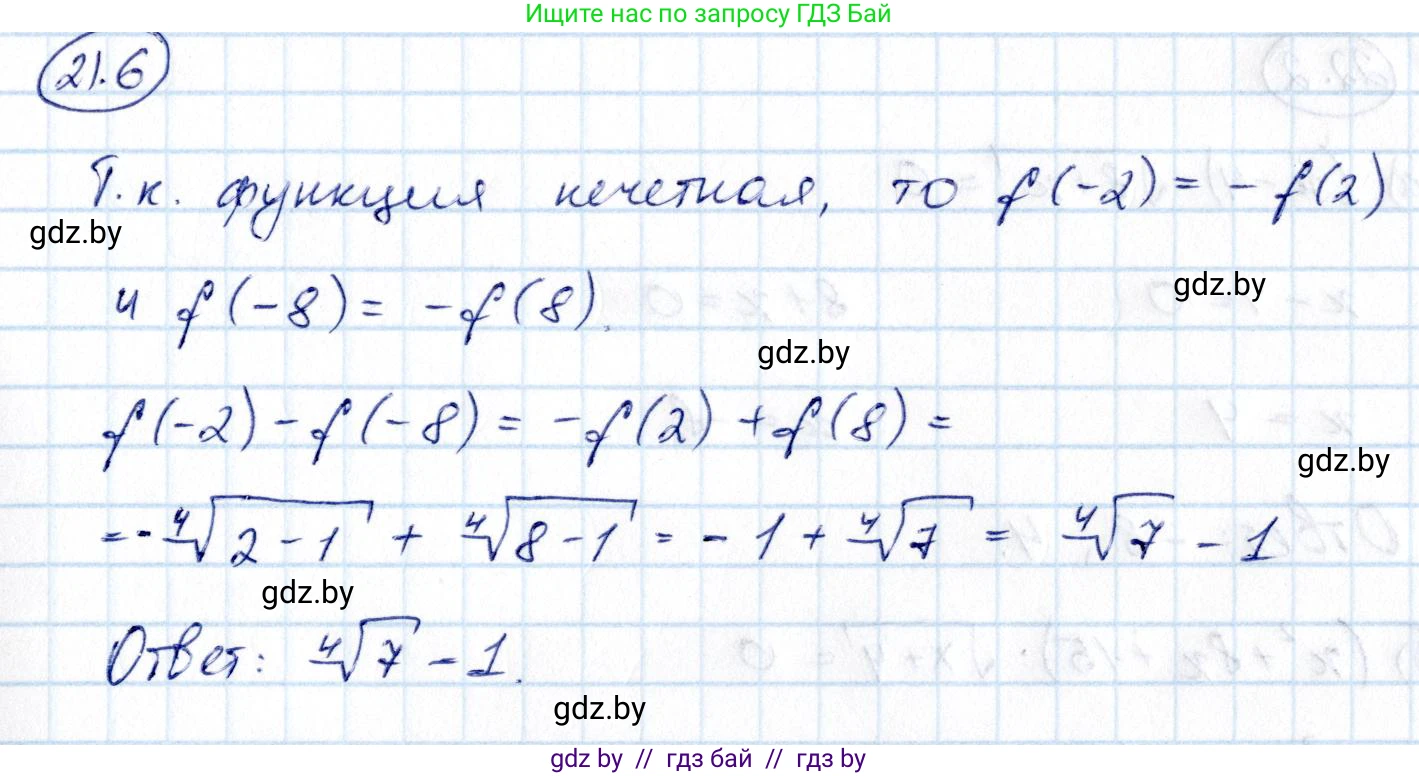 Ищите нас по запросу ГДЗ Бай
21.6
Т.к. функция нечетная, то f(-2) = - f(2)
gdz.by
и f(-8) = -f(8).
gdz.by
gdz.by
f(-2) - f(-8) = -f(2) + f(8) =
gdz.by
= - ⁴√(2-1) + ⁴√(8-1) = - 1 + ⁴√7 = ⁴√7 - 1
gdz.by
Ответ: ⁴√7 - 1.
gdz.by
gdz by // гдз бай // гдз by